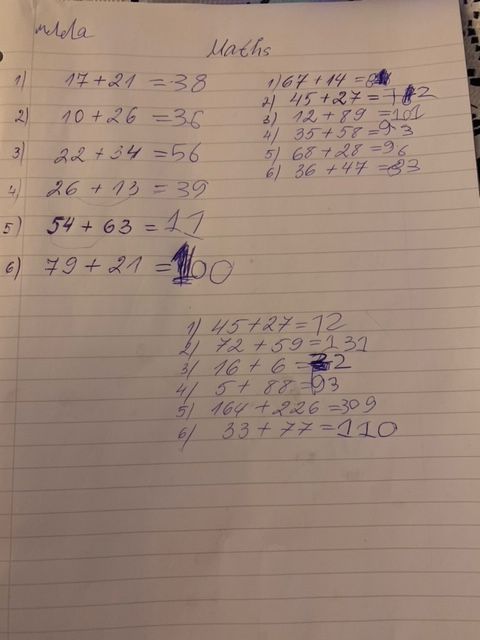 Maths
1) 17+21 = 38
2) 10+26 = 36
3) 22+34 = 56
4) 26 + 13 = 39
5) 54 + 63 = 11
6) 79 + 21 = 100
1) 67 + 14 =
2) 45 + 27 =
3) 12 + 89 = 101
4) 35 + 58 = 93
5) 68 + 28 = 96
6) 36 + 47 = 83
1) 45+27=72
2) 72 + 59=131
3) 16 + 6 = 22
4) 5 + 88 = 93
5) 164 + 226 = 309
6) 33 + 77 = 110